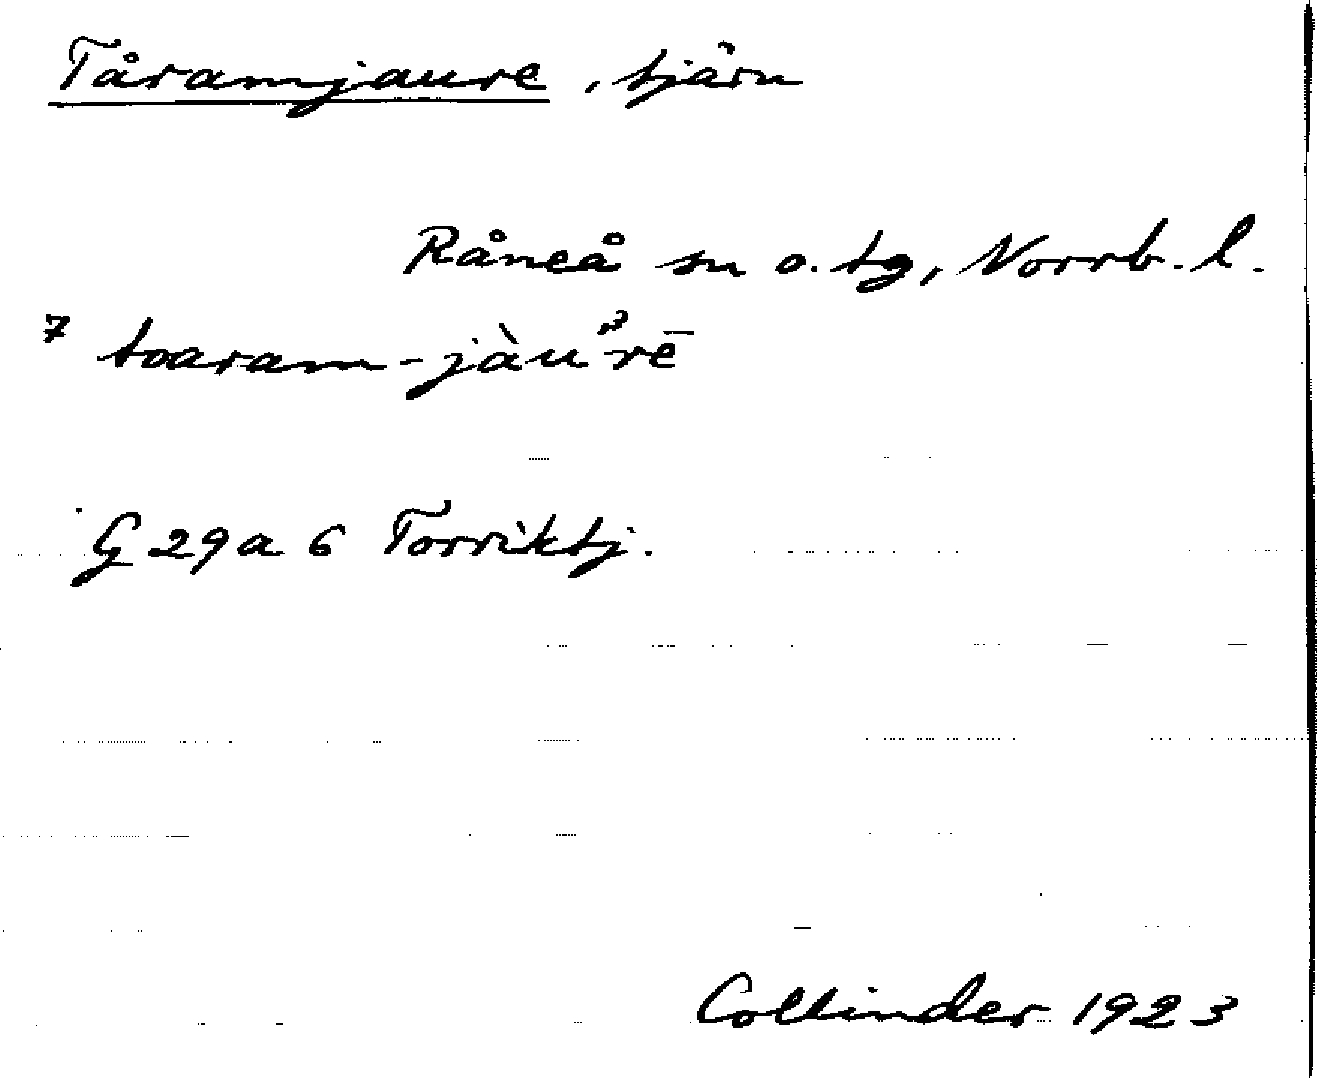 Tåramjaure, tjärn
Råneå sn o. tg, Norrb. l.
7 toaram-jàuᵝrē
G 29 a 6 Torriktj.
Collinder 1923